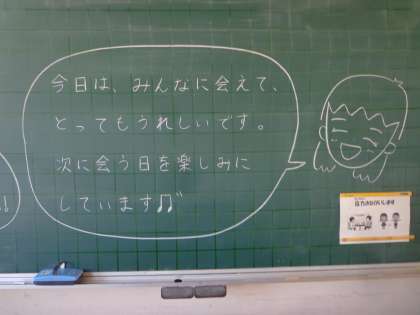 今日は、みんなに会えて、
とってもうれしいです。
次に会う日を楽しみに
しています♫